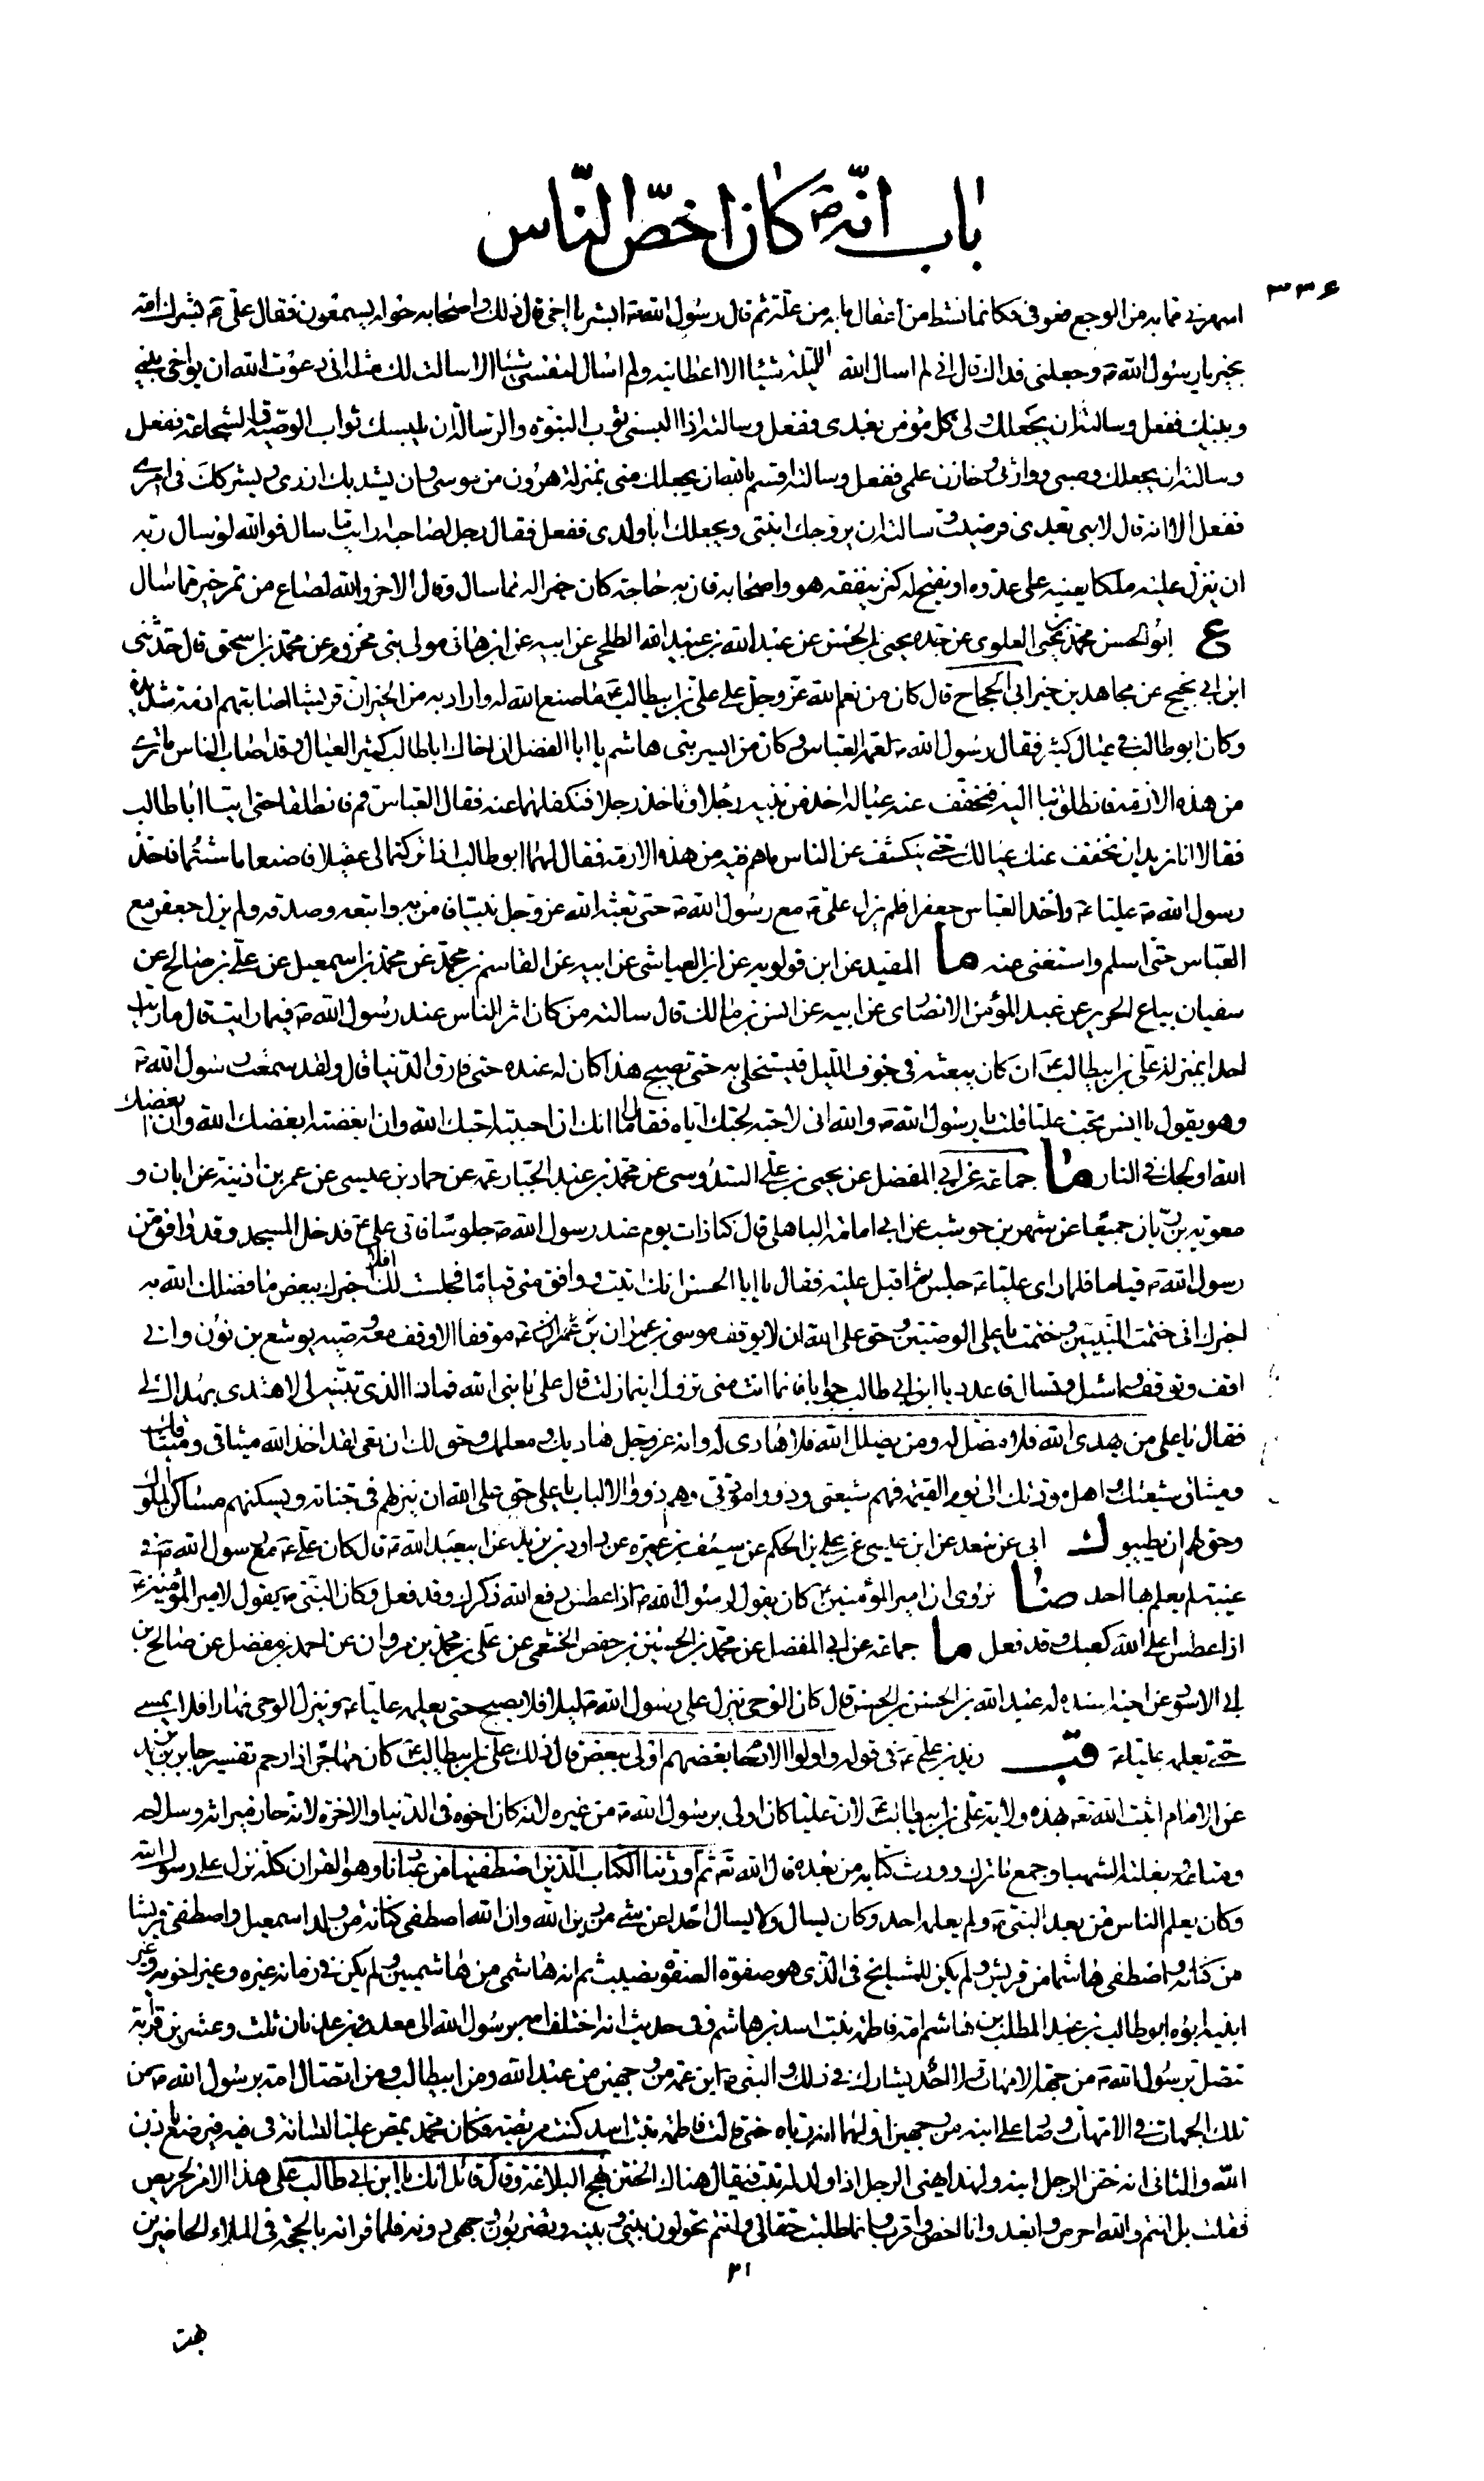 باب انّه ص كان اخصّ النّاس
٣٣٤
اسهرني مما به من الوجع فكانما نشط من عقال ما به من علته ثم قال رسول الله ص ابشر يا اخي قال ذلك واصحابه حوله يسمعون فقال علي ع بشرك الله
بخير يا رسول الله ص وجعلني فداك قال اني لم اسال الله الليلة شيئا الا اعطانيه ولم اسال لنفسي شيئا الا سالت لك مثله اني دعوت الله ان يواخي بيني
وبينك ففعل وسالته ان يجعلك ولي كل مؤمن بعدي ففعل وسالته اذا البسني ثوب النبوة والرسالة ان يلبسك ثواب الوصية والشجاعة ففعل
وسالته ان يجعلك وصيي ووارثي وخازن علمي ففعل وسالته ان يجعلك مني بمنزلة هرون من موسى وان يشد بك ازري ويشركك في امري
ففعل الا انه قال لا نبي بعدي فرضيت وسالته ان يزوجك ابنتي ويجعلك ابا ولدي ففعل فقال رجل لصاحبه ارايت ما سال فوالله لو سال ربه
ان ينزل عليه ملكا يعينه على عدوه او يفتح له كنزا ينفقه هو واصحابه فان به حاجة كان خيرا له مما سال وقال الاخر والله لصاع من تمر خير مما سال
ع ابو الحسن محمد بن يحيى العلوي عن جده يحيى بن الحسن عن عبد الله بن عبيد الله الطلحي عن ابيه عن ابن هاني مولى بني مخزوم عن محمد بن اسحق قال حدثني
ابن ابي نجيح عن مجاهد بن جبر ابي الحجاج قال كان من نعم الله عز وجل على علي بن ابيطالب ع ما صنع الله له واراد به من الخير ان قريشا اصابتهم ازمة شديدة
وكان ابو طالب في عيال كثير فقال رسول الله ص لعمه العباس وكان من ايسر بني هاشم يا ابا الفضل ان اخاك ابا طالب كثير العيال وقد اصاب الناس ما ترى
من هذه الازمة فانطلق بنا اليه فنخفف عنه عياله اخذ من بنيه رجلا وتاخذ رجلا فنكفلهما عنه فقال العباس قم فانطلقا حتى اتيا ابا طالب
فقالا انا نريد ان نخفف عنك عيالك حتى ينكشف عن الناس ما هم فيه من هذه الازمة فقال لهما ابو طالب اذا تركتما لي عقيلا فاصنعا ما شئتما فاخذ
رسول الله ص عليا ع واخذ العباس جعفرا فلم يزل علي ع مع رسول الله ص حتى بعثه الله عز وجل نبيا فامن به واتبعه وصدقه ولم يزل جعفر مع
العباس حتى اسلم واستغنى عنه ما المفيد عن ابن قولويه عن ابن العياشي عن ابيه عن القاسم بن محمد عن محمد بن اسمعيل عن علي بن صالح عن
سفيان بياع الحرير عن عبد المؤمن الانصاري عن ابيه عن انس بن مالك قال سالته من كان اثر الناس عند رسول الله ص فيما رايت قال ما رايت
احدا بمنزلة علي بن ابيطالب ع ان كان يبعثه في جوف الليل فيستخلي به حتى يصبح هذا كان له عنده حتى فارق الدنيا قال ولقد سمعت رسول الله ص
وهو يقول يا انس تحب عليا قلت يا رسول الله ص والله اني لاحبه لحبك اياه فقال اما انك ان احببته احبك الله وان ابغضته ابغضك الله وان ابغضك
الله اولجك في النار ما جماعة عن ابي المفضل عن يحيى بن علي السدوسي عن محمد بن عبد الجبار عن عمه عن حماد بن عيسى عن عمر بن اذينة عن ابان و
معوية بن ريان جميعا عن شهر بن حوشب عن ابي امامة الباهلي قال كنا ذات يوم عند رسول الله ص جلوسا فاتى علي ع فدخل المسجد وقد وافق من
رسول الله ص قياما فلما راى عليا ع جلس ثم اقبل عليه فقال يا ابا الحسن انك اتيت ووافق مني قياما فجلست لك افلا اخبرك ببعض ما فضلك الله به
اخبرك اني ختمت النبيين وختمت يا علي الوصيين وحق على الله ان لا يوقف موسى بن عمران موقفا الا وقف معه وصيه يوشع بن نون واني
اقف وتوقف واسئل وتسال فاعدد يا ابن ابي طالب جوابا فانما انت مني تزول اينما زلت قال علي يا نبي الله فما الذي تبينه لي لاهتدي بهداك لي
فقال يا علي من يهدي الله فلا مضل له ومن يضلل الله فلا هادي له وانه عز وجل هاديك ومعلمك وحق لك ان تعي لقد اخذ الله ميثاقي وميثاقك
وميثاق شيعتك واهل مودتك الى يوم القيمة فهم شيعتي وذووا مودتي وهم ذووا الالباب يا علي حق على الله ان ينزلهم في جناته ويسكنهم مساكن الملوك
وحق لهم ان يطيبوا ك ابي عن سعد عن ابن عيسى عن علي بن الحكم عن سيف بن عميرة عن داود بن يزيد عن ابيعبد الله ع قال كان علي ع مع رسول الله ص في
غيبته لم يعلم بها احد صنا نروي ان امير المؤمنين ع كان يقول لرسول الله ص اذا عطس رفع الله ذكرك وقد فعل وكان النبي ص يقول لامير المؤمنين ع
اذا عطس اعلى الله كعبك وقد فعل ما جماعة عن ابي المفضل عن محمد بن الحسين بن حفص الخثعمي عن علي بن محمد بن مروان عن احمد بن مفضل عن صالح بن
ابي الاسود عن اخيه اسنده له عبد الله بن الحسن بن الحسن قال كان الوحي ينزل على رسول الله ص ليلا فلا يصبح حتى يعلمه عليا ع وينزل الوحي نهارا فلا يمسي
حتى يعلمه عليا ع قب زيد بن علي ع في قوله واولوا الارحام بعضهم اولى ببعض قال ذلك علي بن ابيطالب ع كان مهاجرا ذا رحم تفسير جابر بن يزيد
عن الامام اثبت الله تعه بهذه ولاية علي بن ابيطالب ع لان عليا كان اولى برسول الله ص من غيره لانه كان اخوه في الدنيا والاخرة لانه حاز ميراثه وسلاحه
ومتاعه وبغلته الشهبا وجمع ما ترك وورث كتابه من بعده قال الله تعه ثم اورثنا الكتاب الذين اصطفينا من عبادنا وهو القران كله نزل على رسول الله
وكان يعلم الناس من بعد النبي ص ولم يعلمه احد وكان يسال ولا يسال احدا عن شئ من دين الله وان الله اصطفى كنانة من ولد اسمعيل واصطفى قريشا
من كنانة واصطفى هاشما من قريش ولم يكن للمشايخ في الذي هو صفوة الصفوة نصيب ثم انه هاشمي من هاشميين ولم يكن في زمانه غيره وغير اخويه وغير
ابنيه ابوه ابو طالب بن عبد المطلب بن هاشم امه فاطمة بنت اسد بن هاشم وفي حديث انه اختلف امه برسول الله الى معد بن عدنان ثلث وعشرين قرابة
تتصل برسول الله ص من جهة الامهات ولا احد يشاركه في ذلك والنبي ص ابن عمه من وجهين من عبد الله ومن ابيطالب ومن اتصال امه برسول الله ص من
تلك الجهات في الامهات وصار علي ابنه من وجهين اولهما انه رباه حتى قالت فاطمة بنت اسد كنت مريضة فكان محمد يمص عليا لسانه في فيه فيرضع باذن
الله والثاني انه ختن الرجل ابنه ولهذا يهنى الرجل اذا ولد له بنت فيقال هناك الختن نهج البلاغة وقال قائل انك يا ابن ابي طالب على هذا الامر لحريص
فقلت بل انتم والله احرص وابعد وانا اخص واقرب وانما طلبت حقا لي وانتم تحولون بيني وبينه وتضربون وجهي دونه فلما قرعته بالحجة في الملاء الحاضرين
٢١
بهت